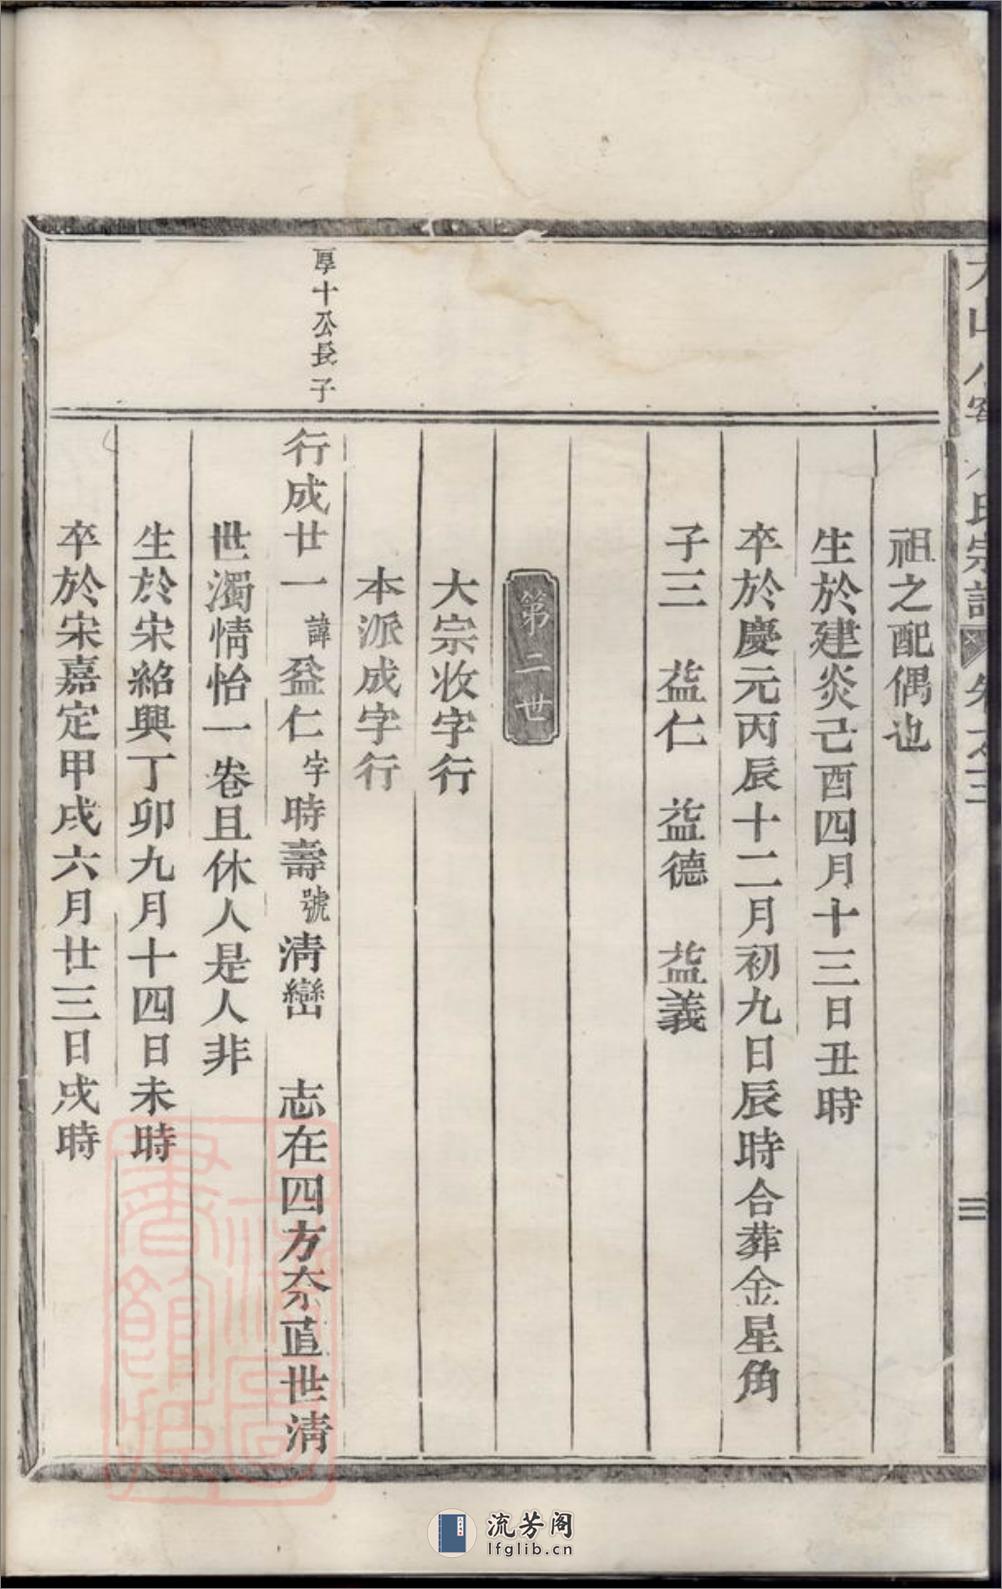 祖之配偶也
生於建炎己酉四月十三日丑時
卒於慶元丙辰十二月初九日辰時合葬金星角
子三 益仁 益德 益義
第二世
大宗收字行
本派成字行
厚十公長子
行成廿一諱益仁字時壽號淸巒 志在四方奈直世淸
世濁情怡一卷且休人是人非
生於宋紹興丁卯九月十四日未時
卒於宋嘉定甲戌六月廿三日戌時
氏宗譜 卷之三
三
流芳阁
lfglib.cn